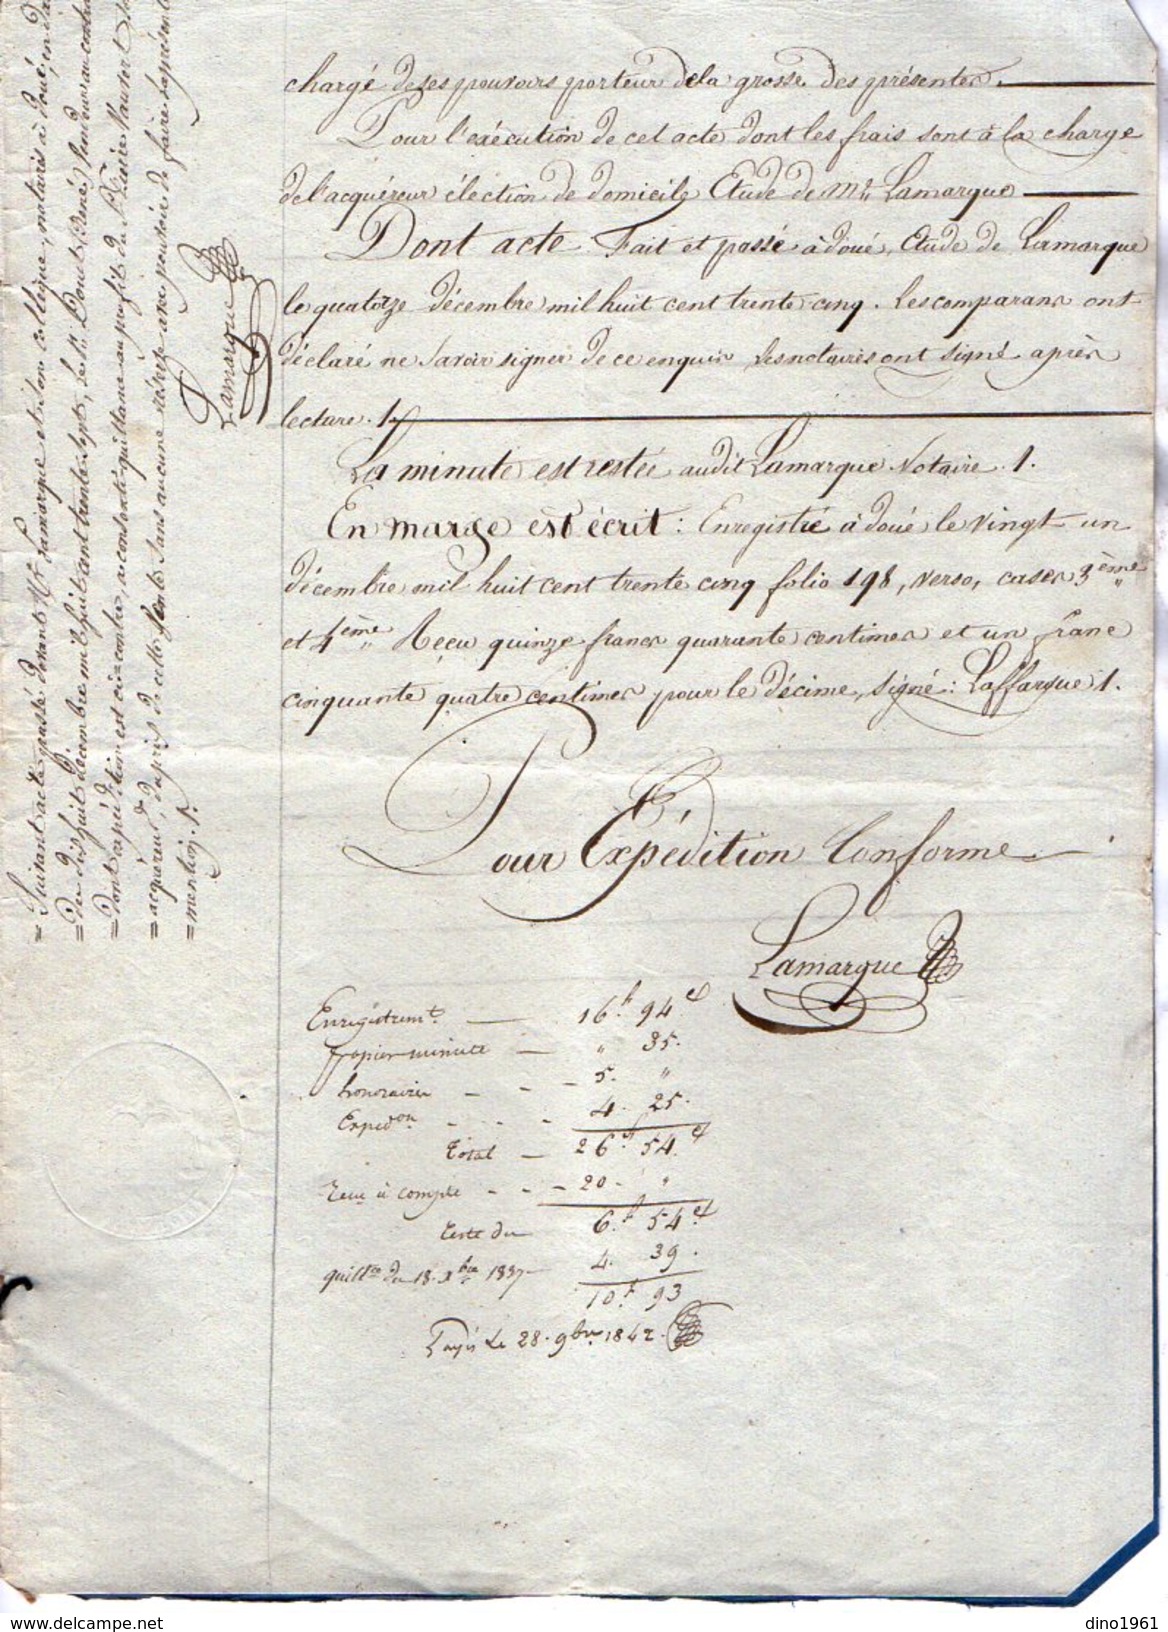 chargé de ses pouvoirs porteur de la grosse des présentes.
Pour l'exécution de cet acte dont les frais sont à la charge
de l'acquéreur élection de domicile Etude de Me Lamarque
Dont acte Fait et passé à doué, Etude de Lamarque
le quatorze décembre mil huit cent trente cinq. Les comparans ont
déclaré ne savoir signer de ce enquis, les notaires ont signé après
lecture. 1.
La minute est restée audit Lamarque Notaire. 1.
En marge est écrit : Enregistré à doué le vingt un
décembre mil huit cent trente cinq folio 198, verso, cases 3ème
et 4ème Reçu quinze francs quarante centimes et un franc
cinquante quatre centimes pour le décime, signé : Laffargue 1.
Pour Expédition Conforme
Lamarque
Enregistremt. — 16f 94c
papier minute — " 35.
honoraires - - - 5. "
Expedon - - - 4. 25.
Total — 26f 54c
recu à compte - - - 20 - "
reste du 6.f 54c
quittce du 18. Xbre 1837 — 4. 39.
10f 93
Payé Le 28. 9bre 1842.
= Suivant acte passé devant Me Lamarque et son collègue, notaires à doué, en da
= du dix huit décembre mil huit cent trente sept, le sr. Douet (René) vendeur au contra
= dont expédition est ci contre, a consenti quittance au profit du Sr
= acquéreur, d'après de cette vente sans aucune réserve avec pouvoir de faire
= mention. 1.
Lamarque
dino1961